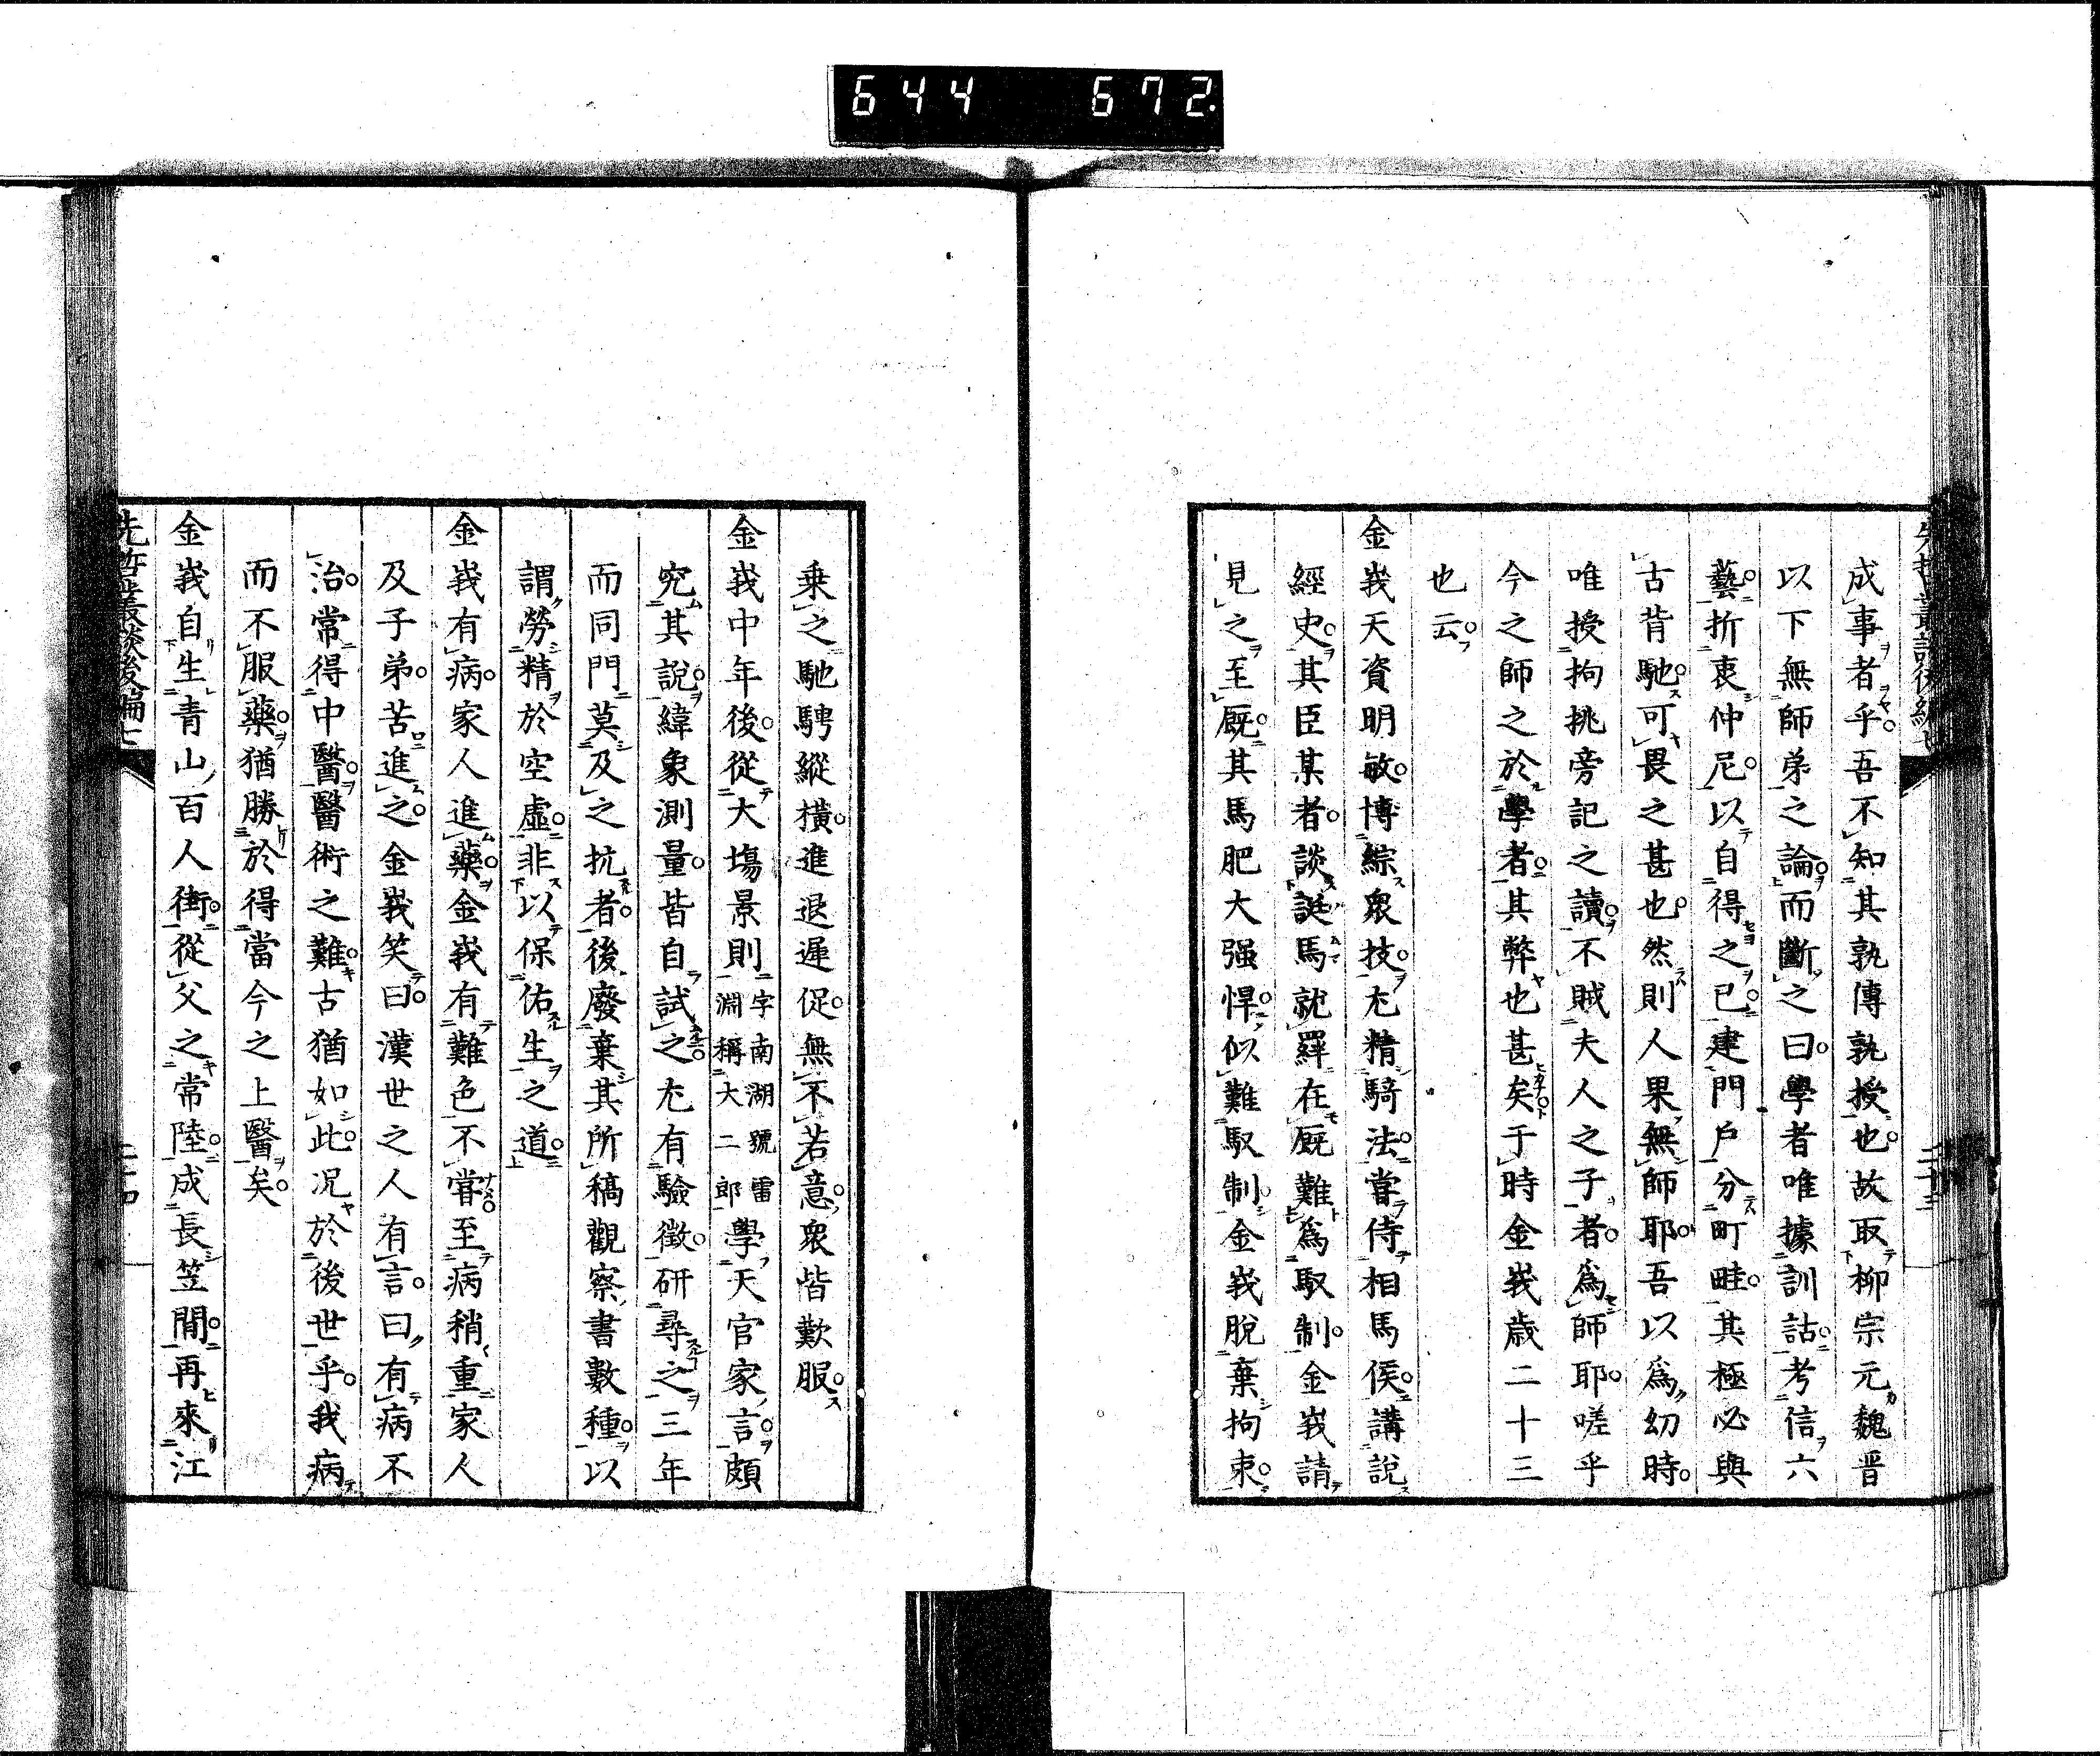 644 672.
成事者乎吾不知其孰傳孰授也故取柳宗元魏晋
以下無師弟之論而斷之曰學者唯據訓詁考信六
藝折衷仲尼以自得之已建門戶分町畦其極必與
古背馳可畏之甚也然則人果無師耶吾以爲幼時
唯授拘挑旁記之讀不賊夫人之子者爲師耶嗟乎
今之師之於學者其弊也甚矣于時金峩歲二十三
也云
金峩天資明敏博綜衆技尤精騎法嘗侍相馬侯講說
經史其臣某者談誕馬就羈在厩難爲馭制金峩請
見之至厩其馬肥大强悍似難馭制金峩脫棄拘束
乗之馳騁縱橫進退遲促無不若意衆皆歎服
金峩中年後從大塲景則字南湖號雷淵稱大二郎學天官家言頗
究其說緯象測量皆自試之尤有驗徵研尋之三年
而同門莫及之抗者後廢棄其所稿觀察書數種以
謂勞精於空虛非以保佑生之道
金峩有病家人進藥金峩有難色不嘗至病稍重家人
及子弟苦進之金峩笑曰漢世之人有言曰有病不
治常得中醫醫術之難古猶如此况於後世乎我病
而不服藥猶勝於得當今之上醫矣
金峩自生青山百人街從父之常陸成長笠間再來江
先哲叢談後編七